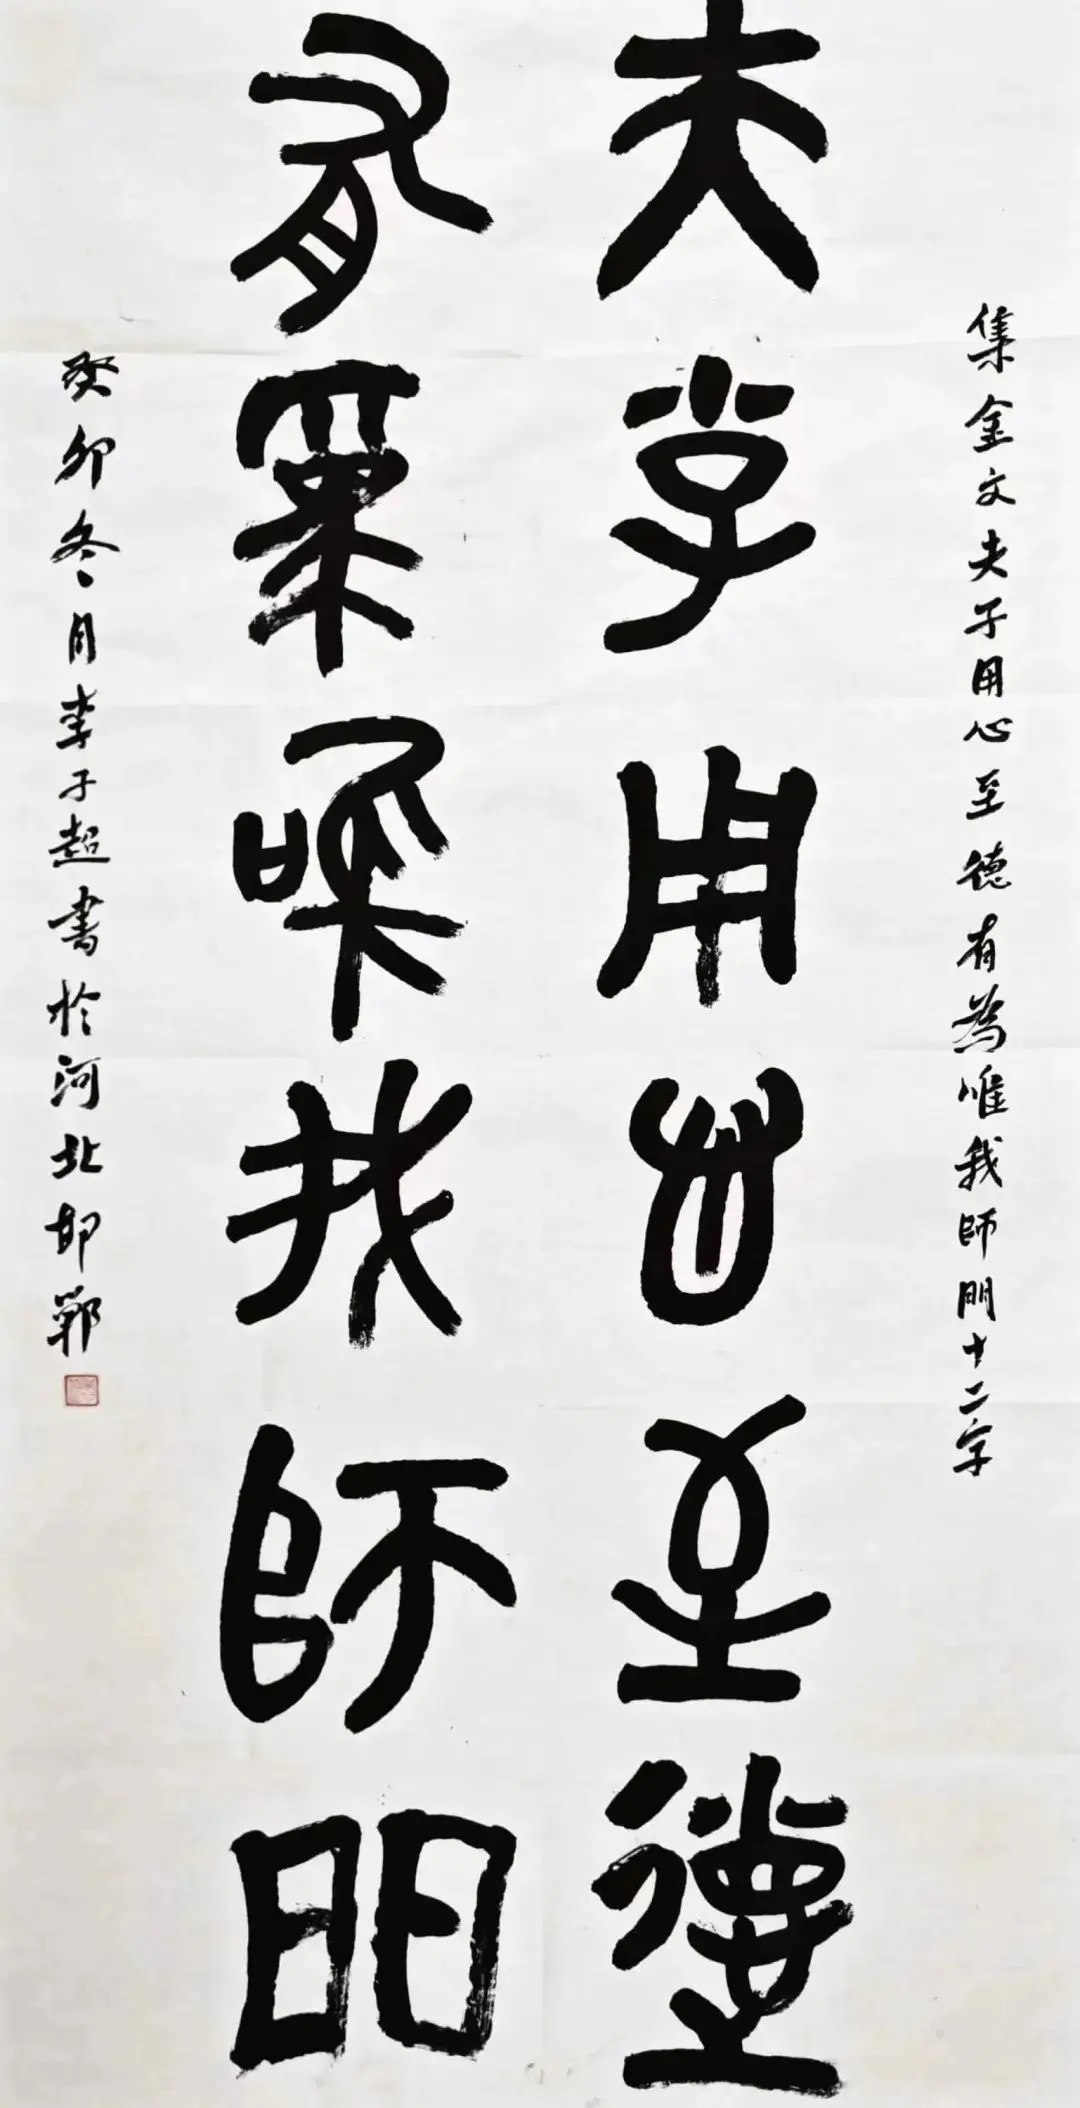 集金文夫子用心至德有為唯我師朋十二字
夫子用心至德
有為唯我師朋
癸卯冬月李子超書於河北邯鄲